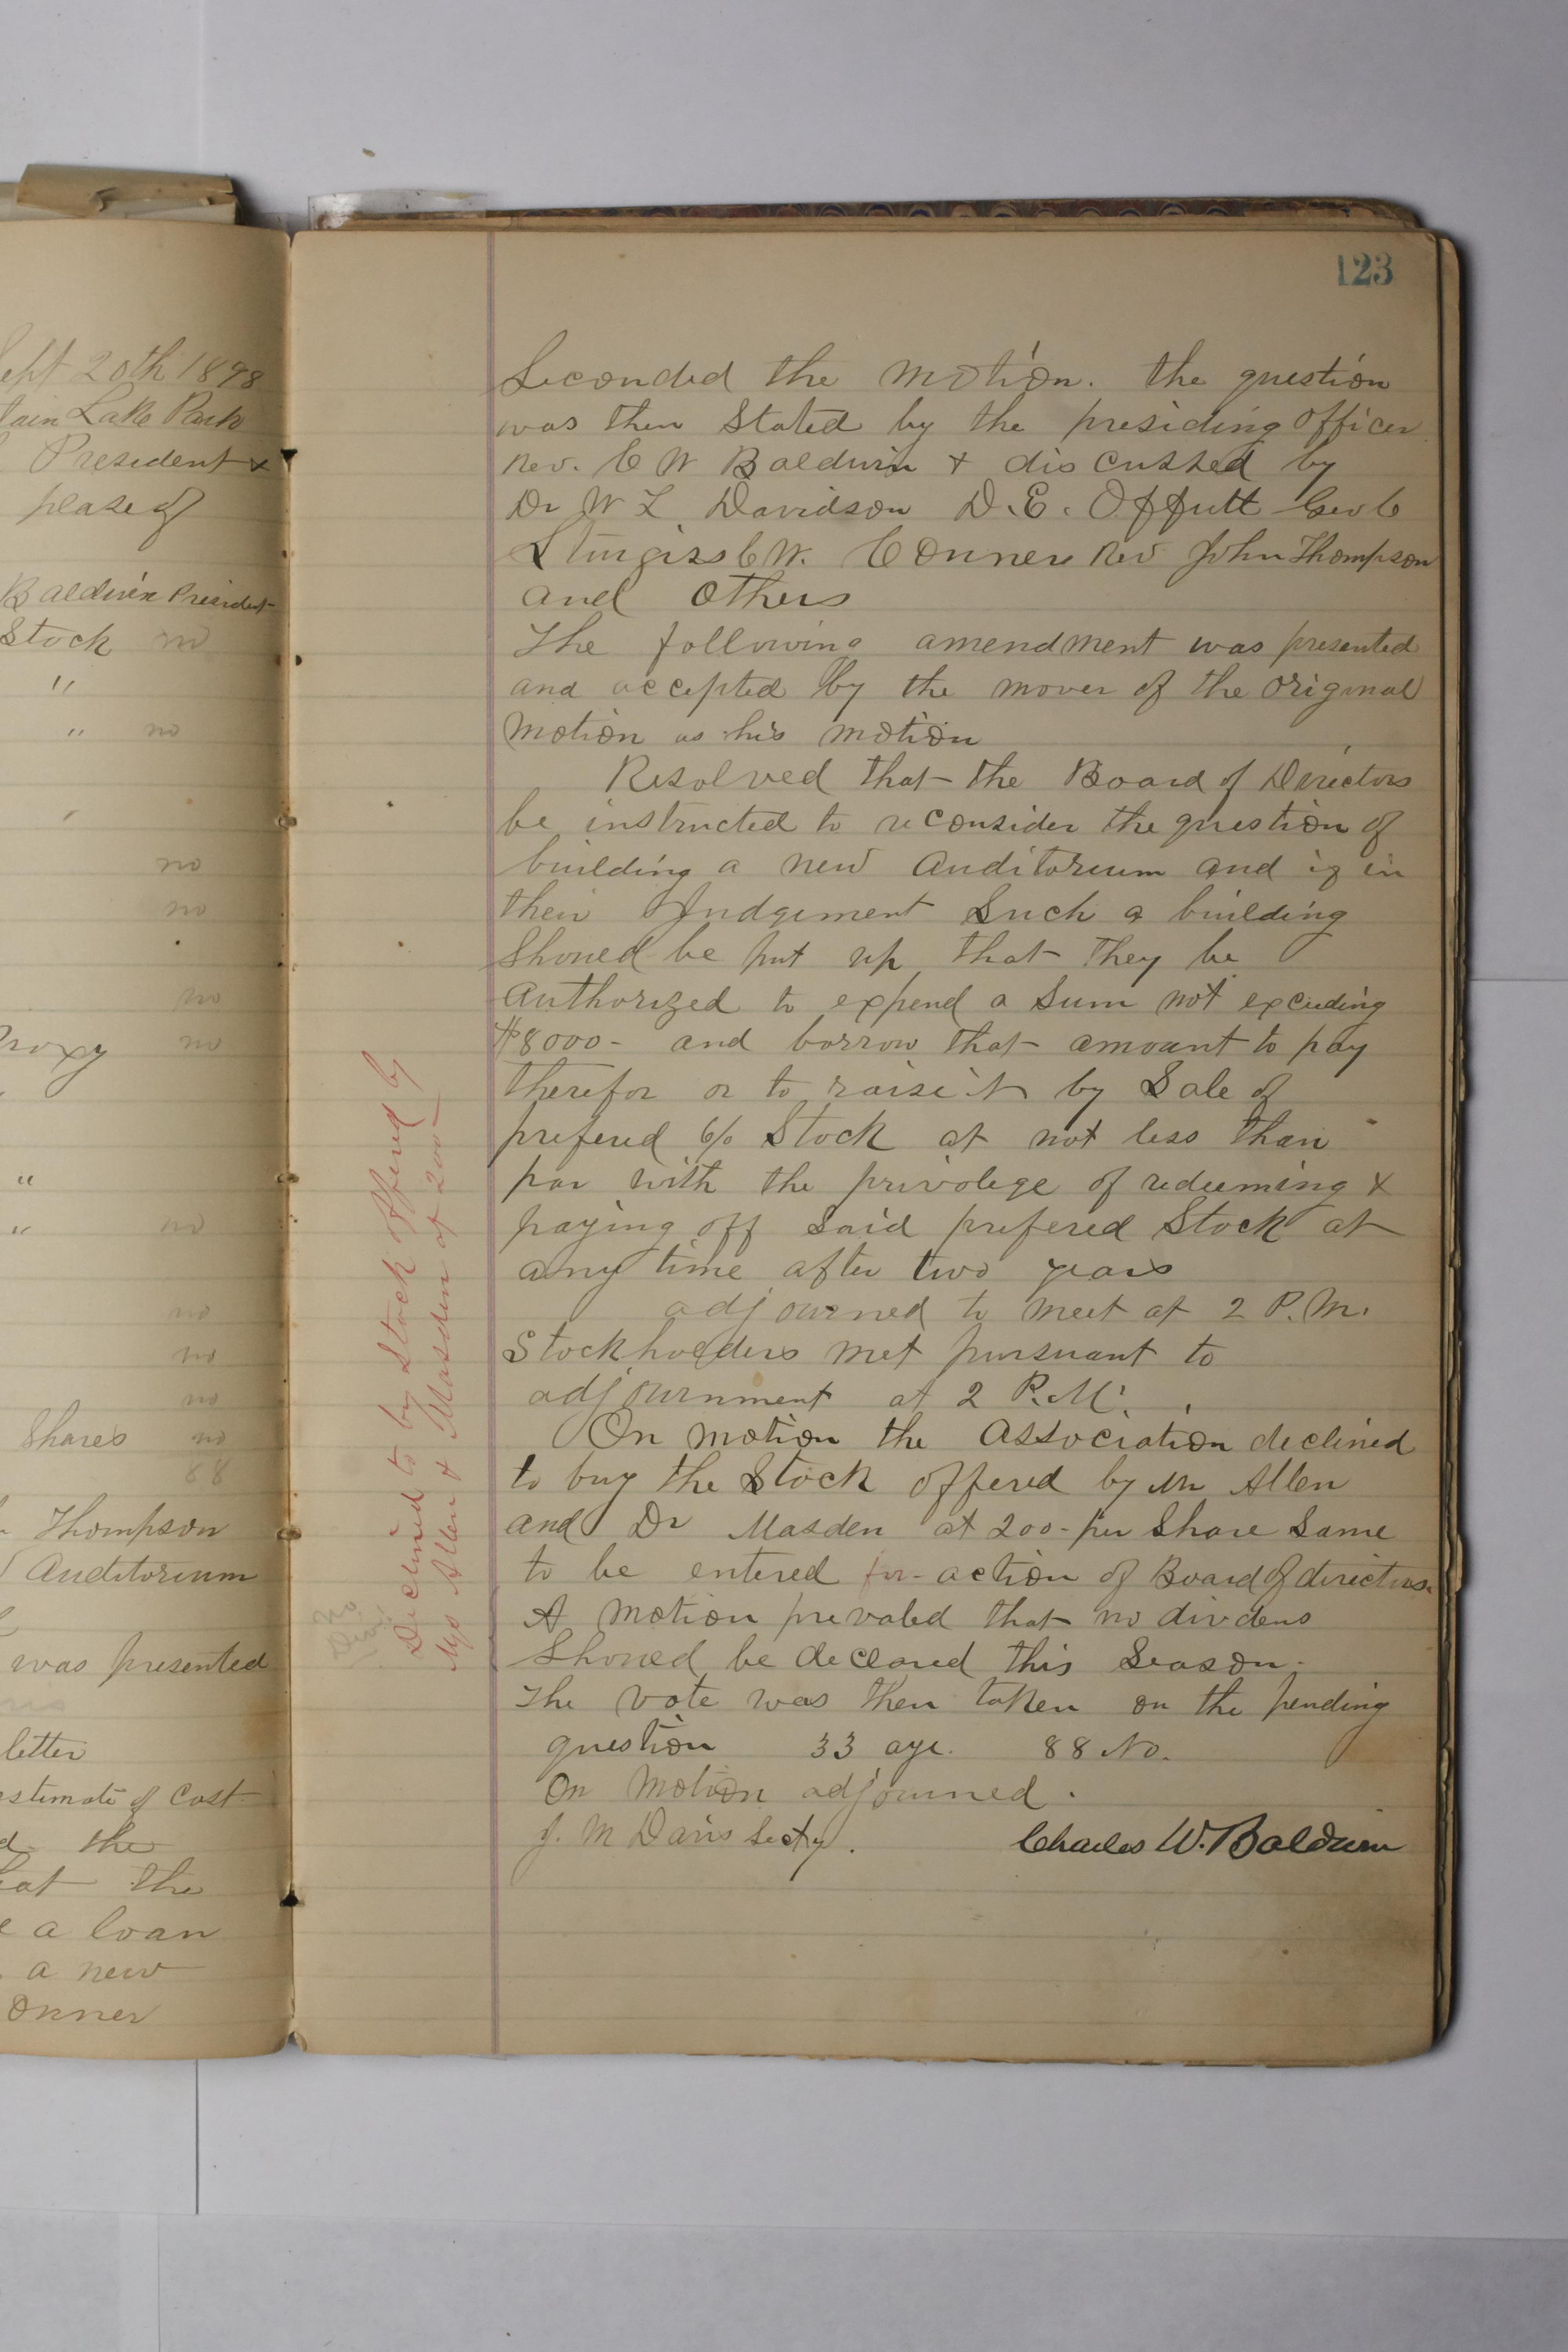 ept 20th 1898
tain Lake Park
President &
place of
Baldwin President
Stock no
"
" no
"
no
no
no
Proxy no
"
" no
no
no
no
Shares no
88
Thompson
Auditorium
was presented
letter
estimate of Cost
the
that the
e a loan
a new
onner
123
Seconded the motion. the question
was then Stated by the presiding officer
Rev. C W Baldwin & discussed by
Dr W L Davidson D. E. Offutt Geo C
Sturgiss C W. Conner Rev John Thompson
and others
The following amendment was presented
and accepted by the mover of the original
motion as his motion
Resolved that the Board of Directors
be instructed to reconsider the question of
building a new Auditorium and if in
their Judgement Such a building
Should be put up that they be
Authorized to expend a Sum not exceeding
$8000- and borrow that amount to pay
therefor or to raise it by Sale of
prefered 6% Stock at not less than
par with the privolege of redeeming &
paying off Said prefered Stock at
any time after two years
adjourned to meet at 2 P.M.
Stockholders met pursuant to
adjournment at 2 P.M.
On motion the Association declined
to buy the Stock offered by Mr Allen
and Dr Masden at 200- per Share Same
to be entered for action of Board of directors.
A motion prevaled that no dividens
Should be declared this Season.
The vote was then taken on the pending
question 33 aye. 88 No.
On Motion adjourned.
J. M Davis Secty. Charles W. Baldwin
Declined to by Stock offered by
Allen & Masden at 200-
No
Div.